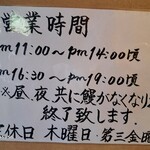 営業時間
am 11:00〜pm 14:00頃
pm 16:30〜pm 19:00頃
※昼、夜、共に鰻がなくなり
終了致します.
定休日 木曜日:第三金曜